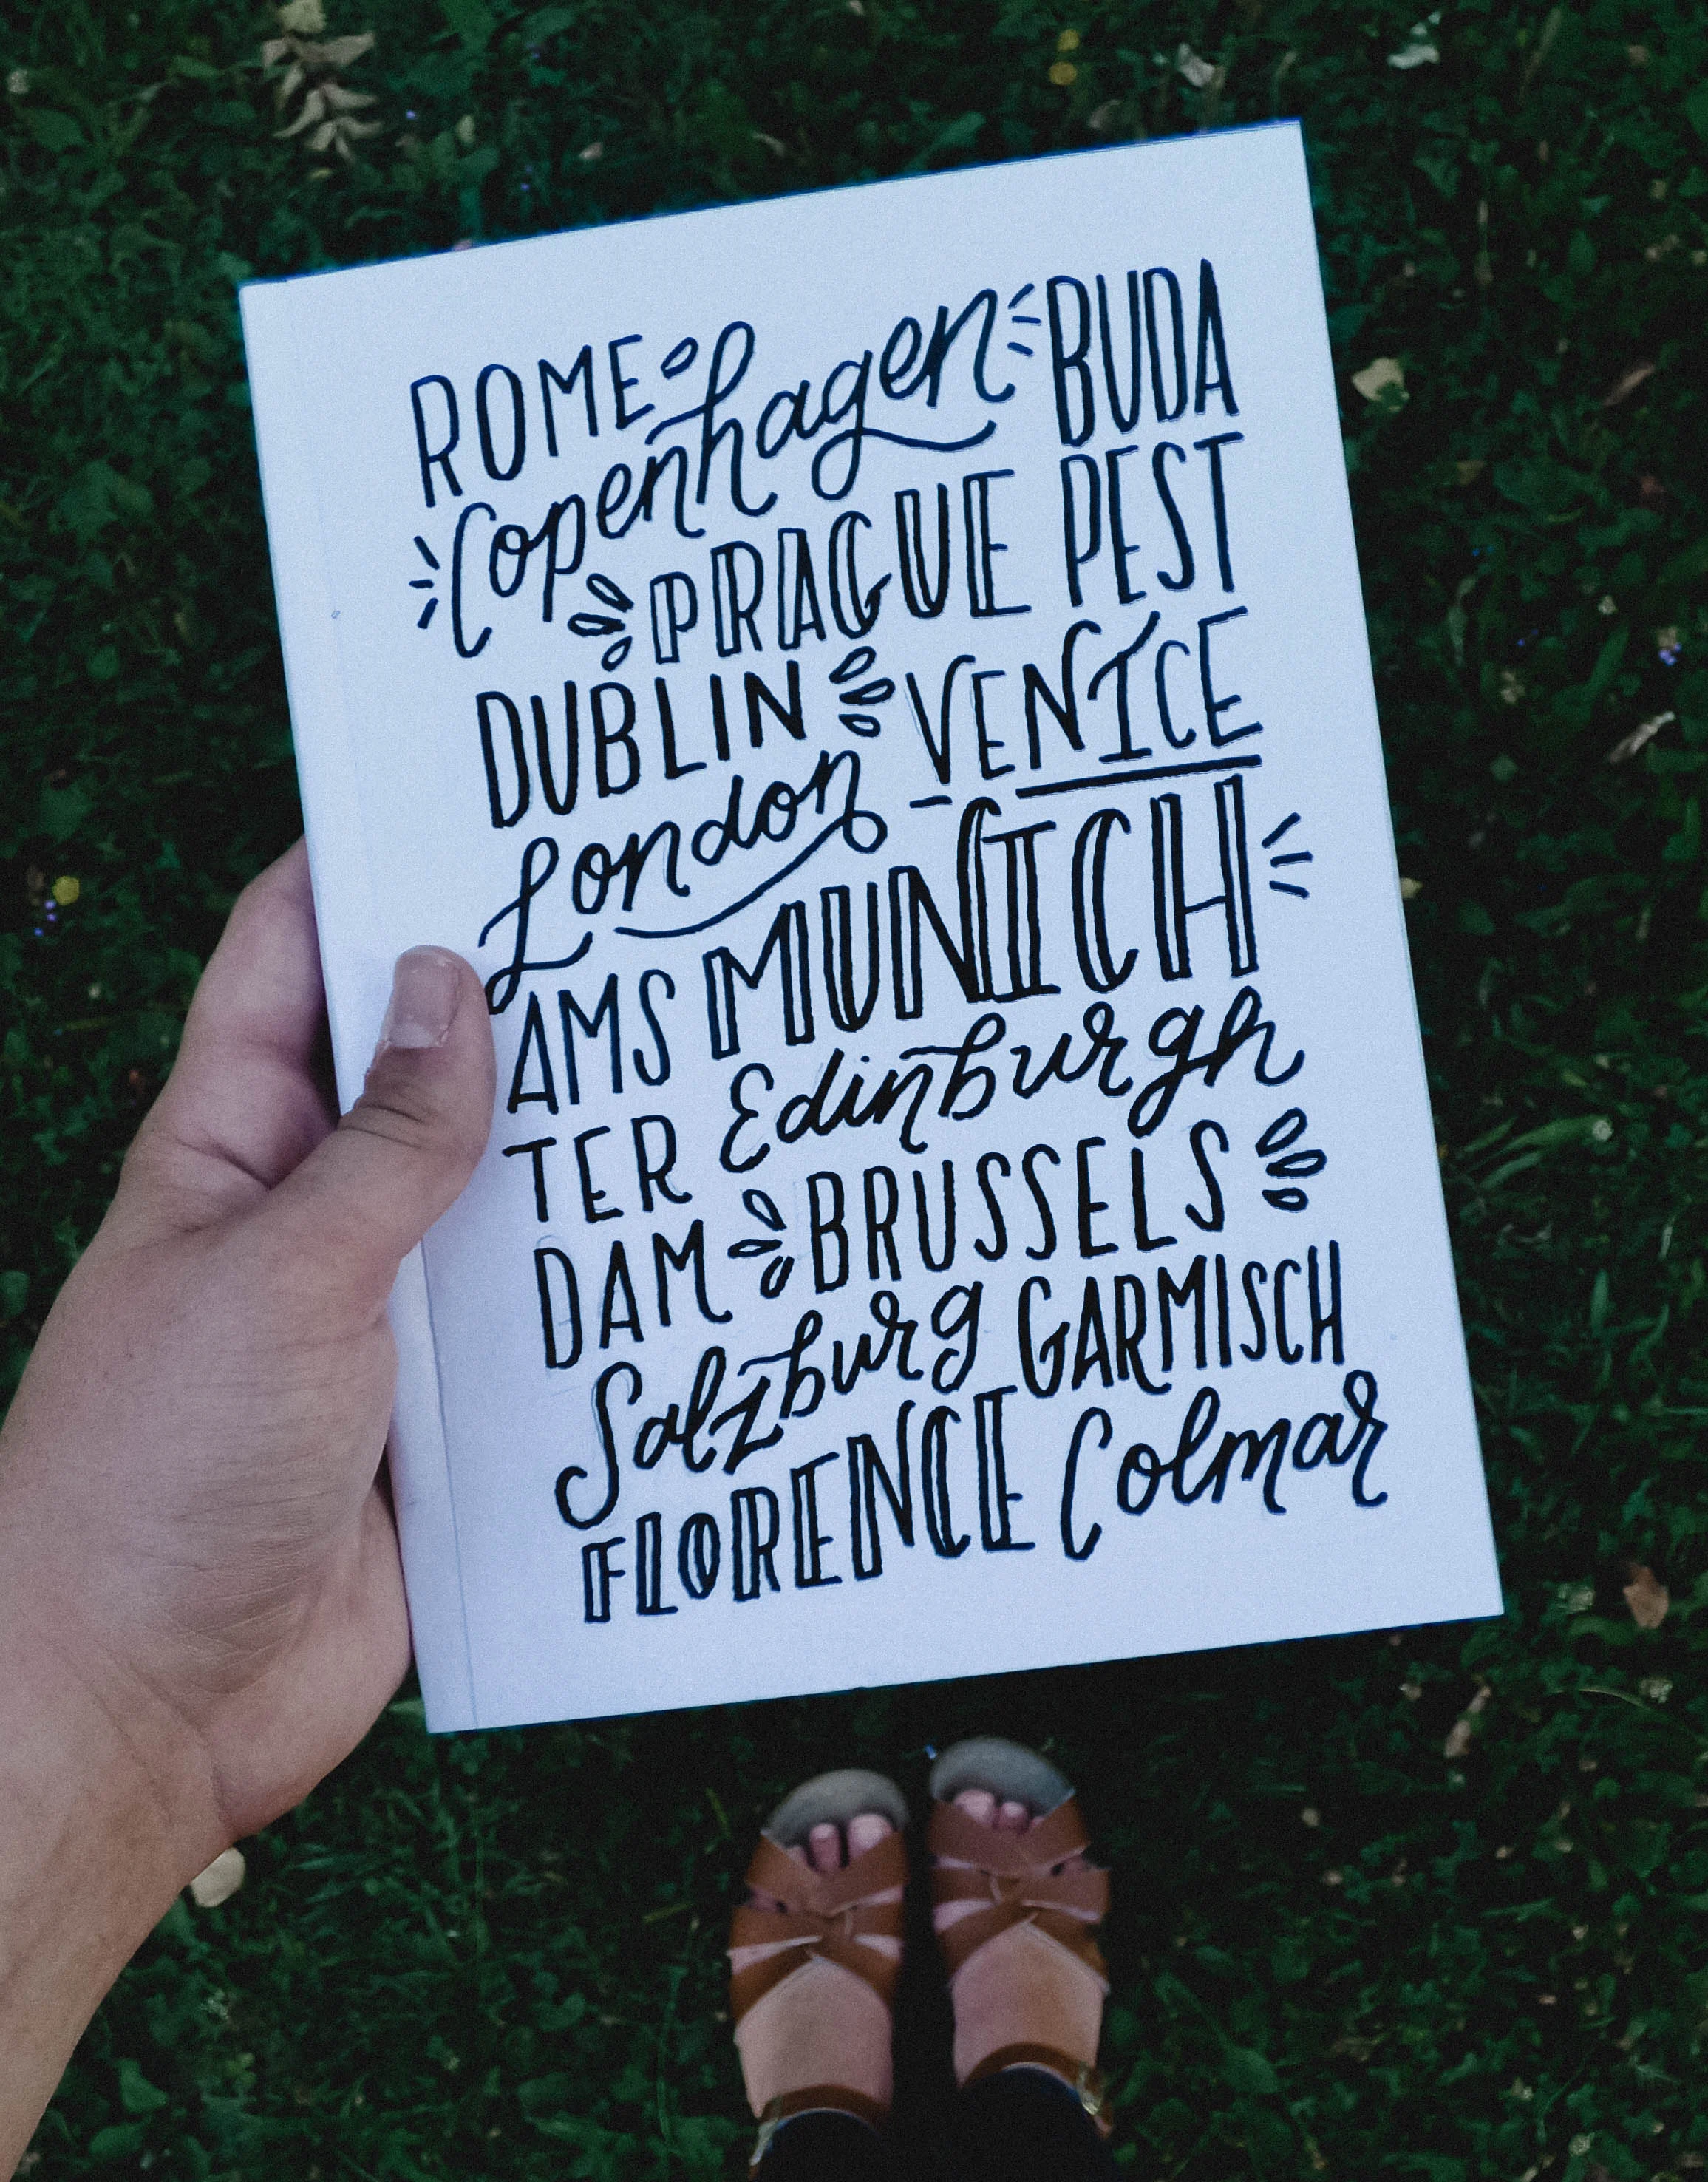 ROME BUDA
Copenhagen
PRAGUE PEST
DUBLIN VENICE
London
AMS MUNICH
TER Edinburgh
DAM BRUSSELS
Salzburg GARMISCH
FLORENCE Colmar